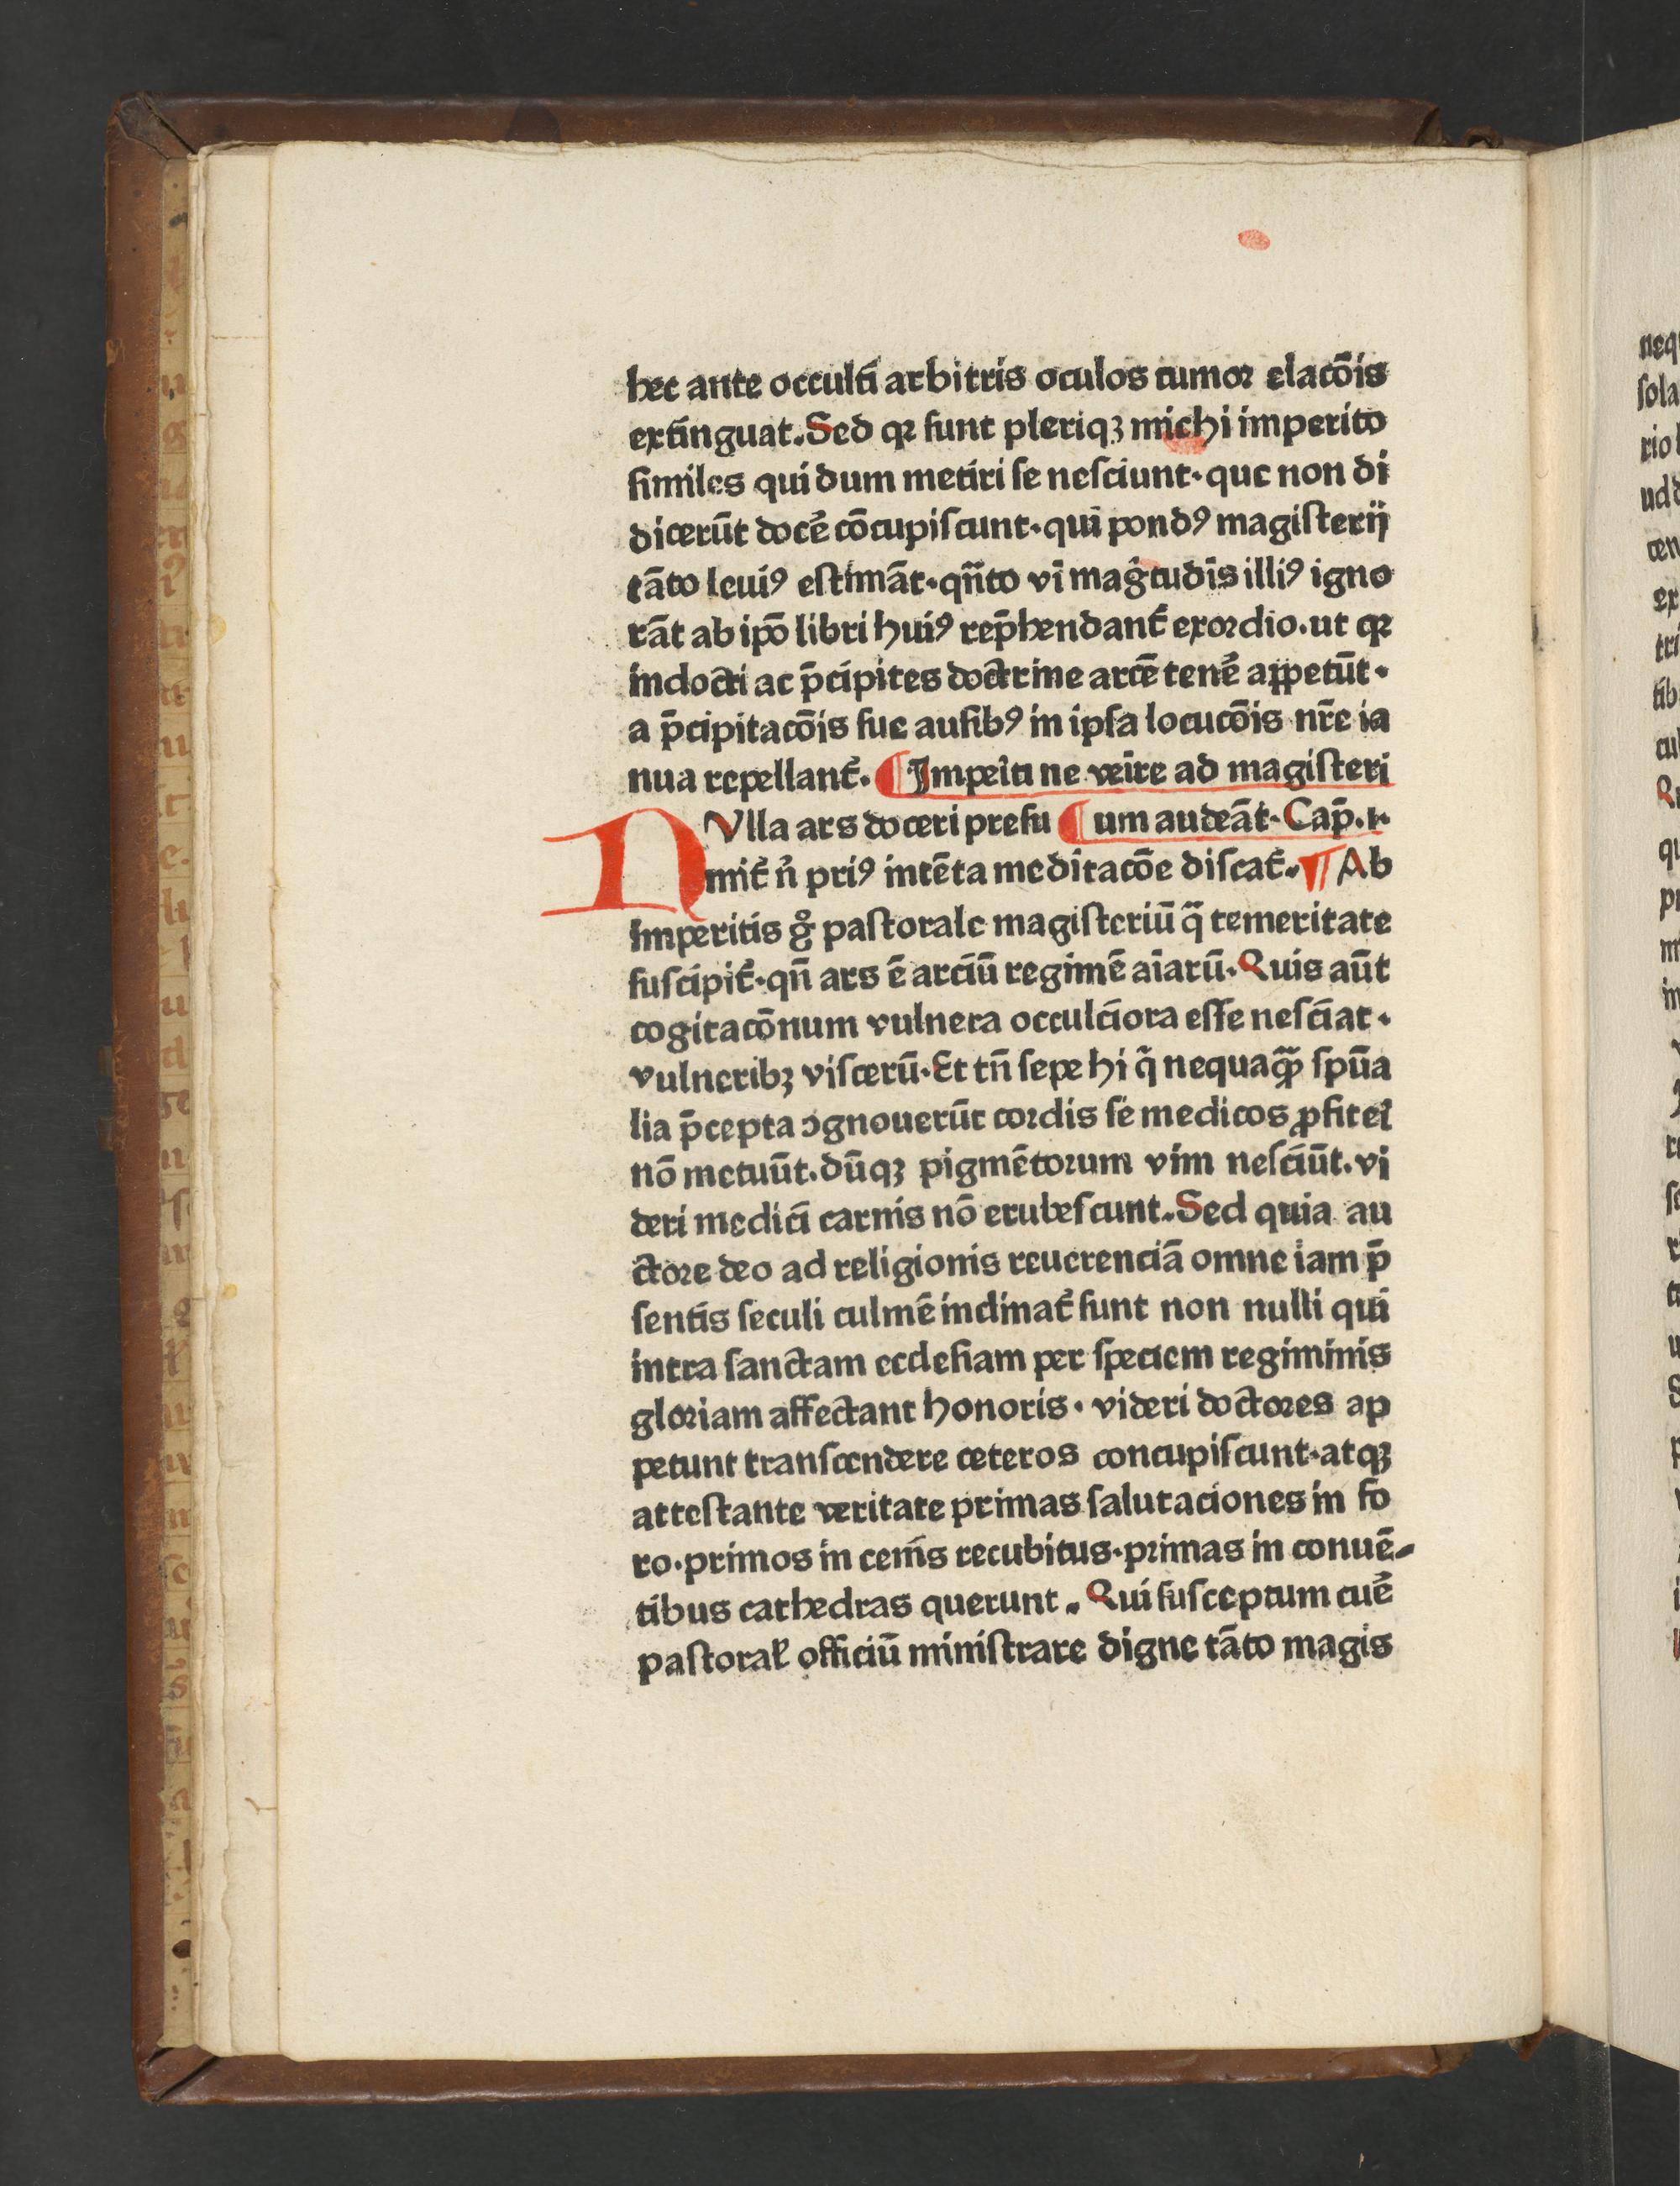 hec ante occulti arbitris oculos tumor elacōis
extinguat. Sed qꝛ sunt pleriqꝫ michi imperito
similes qui dum metiri se nesciunt · que non di
dicerūt docē cōcupiscunt · qui pondꝰ magisterij
tāto leuiꝰ estimāt · qn̄to vī mag̃tudīs illiꝰ igno
rāt ab ip̄o libri huiꝰ rep̄hendant̄ exordio. ut qꝛ
indocti ac p̄cipites doctrine arcē tenē appetūt ·
a p̄cipitacōis sue ausibꝰ in ipsa locucōis nr̄e ia
nua repellant̄. ¶ Impeīti ne veīre ad magisteri
NVlla ars doceri presu ¶ um audeāt · Cap̄. i ·
mit̄ n̄ priꝰ intēta meditacōe discat̄. ¶ Ab
imperitis gͦ pastorale magisteriū q̄ temeritate
suscipit̄ · qn̄ ars ē arciū regimē aīarū. Quis aūt
cogitacōnum vulnera occulciora esse nesciat ·
vulneribꝫ viscerū. Et tn̄ sepe hi q̄ nequaꝙ̄ sp̄ua
lia p̄cepta ꝯgnouerūt cordis se medicos ꝓfiteꝛ̄
nō metuūt. dūqꝫ pigmētorum vim nesciūt. vi
deri medici carnis nō erubescunt. Sed quia au
ctore deo ad religionis reuerenciā omne iam p̄
sentis seculi culmē inclinat̄ sunt non nulli qui
intra sanctam ecclesiam per speciem regiminis
gloriam affectant honoris · videri doctores ap
petunt transcendere ceteros concupiscunt · atqꝫ
attestante veritate primas salutaciones in fo
ro · primos in cenis recubitus · primas in conuē-
tibus cathedras querunt. Qui susceptum cuē
pastoral̓ officiū ministrare digne tāto magis